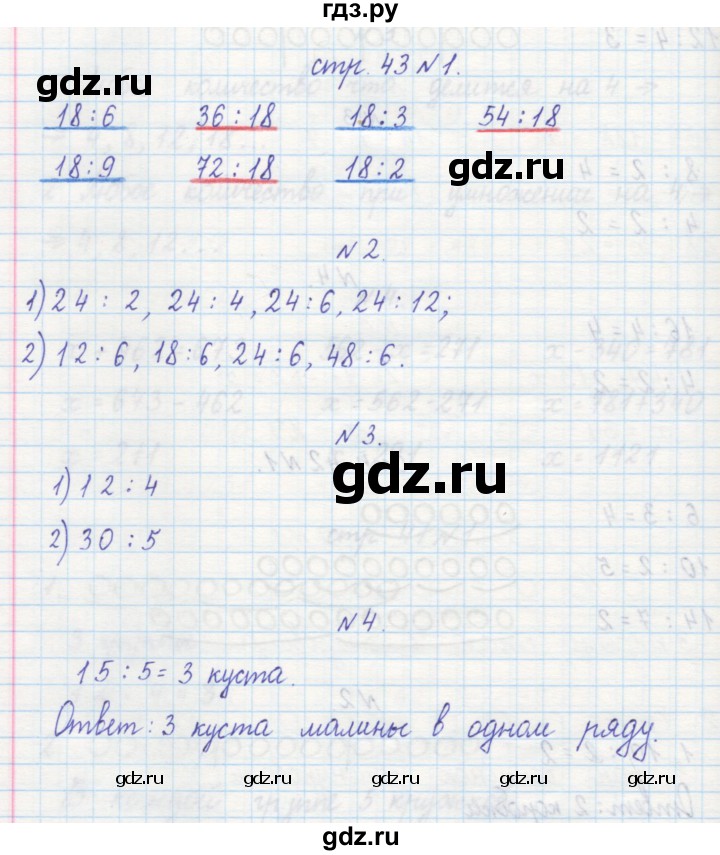 гдз.ру
стр. 43 №1.
gdz.ru
18:6 36:18 18:3 54:18
18:9 72:18 18:2
gdz.ru
№2.
1) 24 : 2, 24 : 4, 24:6, 24:12;
2) 12:6, 18:6, 24:6, 48:6.
№3.
1) 12 : 4
gdz.ru
2) 30 : 5
№4.
15 : 5 = 3 куста.
Ответ: 3 куста малины в одном ряду.
gdz.ru gdz.ru gdz.ru gdz.ru gdz.ru
gdz.ru